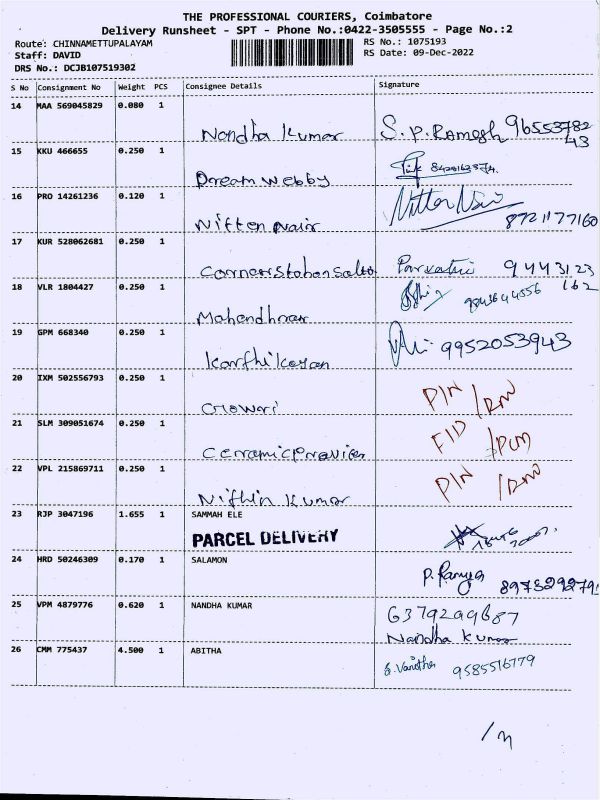 THE PROFESSIONAL COURIERS, Coimbatore
Delivery Runsheet - SPT - Phone No.:0422-3505555 - Page No.:2
Route: CHINNAMETTUPALAYAM RS No.: 1075193
Staff: DAVID RS Date: 09-Dec-2022
DRS No.: DCJB107519302
S No Consignment No Weight PCS Consignee Details Signature
14 MAA 569045829 0.080 1
Nandha Kumar S.P.Ramesh 96553782
43
15 KKU 466655 0.250 1
Dream Webby
16 PRO 14261236 0.120 1
Nitten Nair Nitten Nair 8721177160
17 KUR 528062681 0.250 1
Parvathi 9443123
162
18 VLR 1804427 0.250 1
9843644556
Mahendhran
19 GPM 668340 0.250 1
Karthikeyan 9952053943
20 IXM 502556793 0.250 1
Gowri PIN
21 SLM 309051674 0.250 1
22 VPL 215869711 0.250 1
Nithin Kumar PIN
23 RJP 3047196 1.655 1 SAMMAH ELE
PARCEL DELIVERY
24 HRD 50246309 0.170 1 SALAMON
P. Ramya 897529279
25 VPM 4879776 0.620 1 NANDHA KUMAR 6379299687
Nandha Kumar
26 CMM 775437 4.500 1 ABITHA
S. Vanitha 9585516779